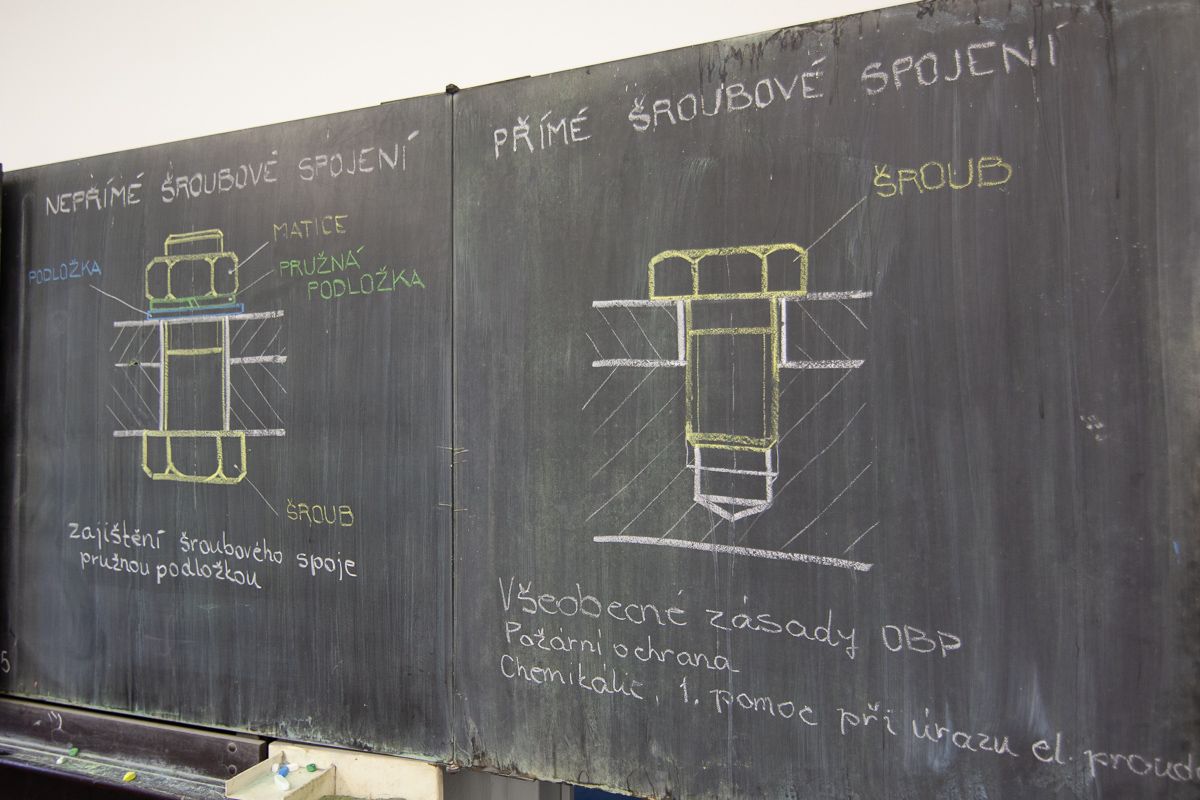 NEPŘÍMÉ ŠROUBOVÉ SPOJENÍ
MATICE
PODLOŽKA
PRUŽNÁ
PODLOŽKA
ŠROUB
zajištění šroubového spoje
pružnou podložkou
PŘÍMÉ ŠROUBOVÉ SPOJENÍ
ŠROUB
Všeobecné zásady OBP
Požární ochrana
Chemikálie, 1. pomoc při úrazu el. proud
5